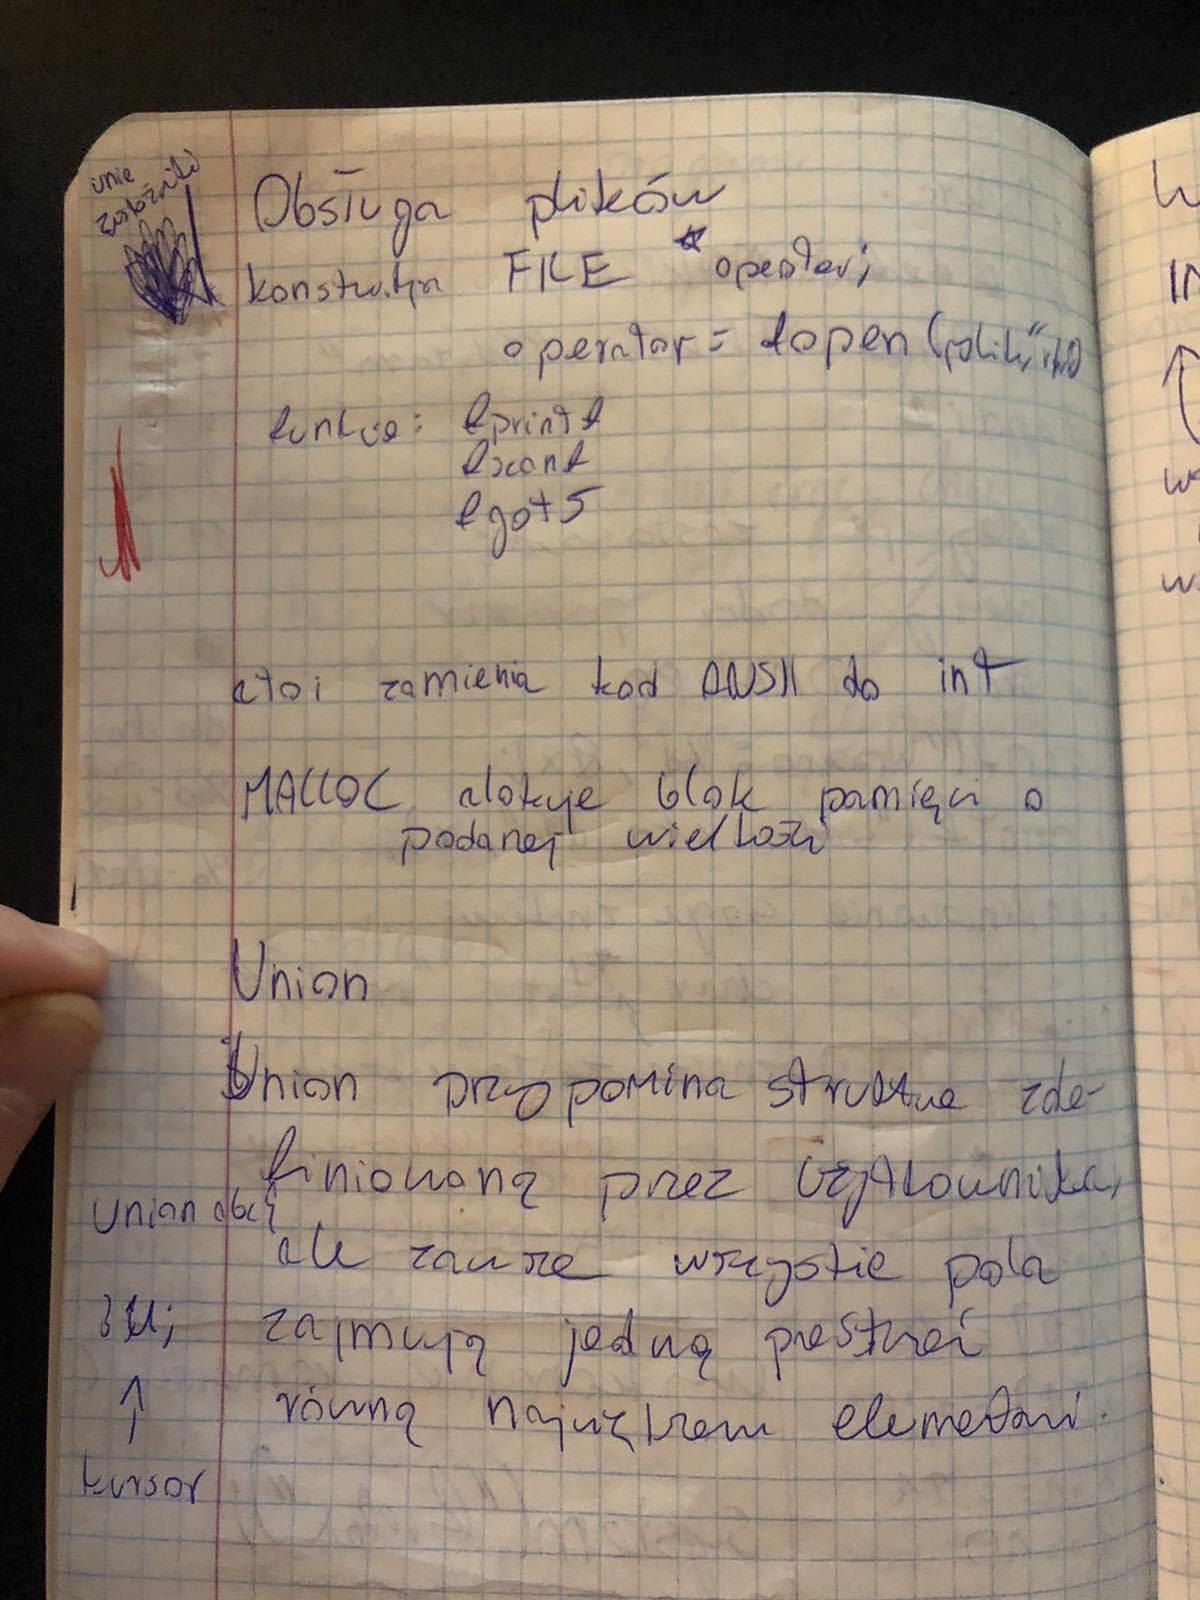 unie
Obsługa plików
konstrukcja FILE * operator;
operator = fopen (plik, "
funkcje: fprintf
fscanf
fgets
atoi zamienia kod ANSII do int
MALLOC alokuje blok pamięci o
podanej wielkości
Union
Union przypomina strukturę zde-
finiowaną przez użytkownika,
ale zawsze wszystkie pola
zajmują jedną przestrzeń
równą największem elementowi.
union abc {
} u;
↑
kursor